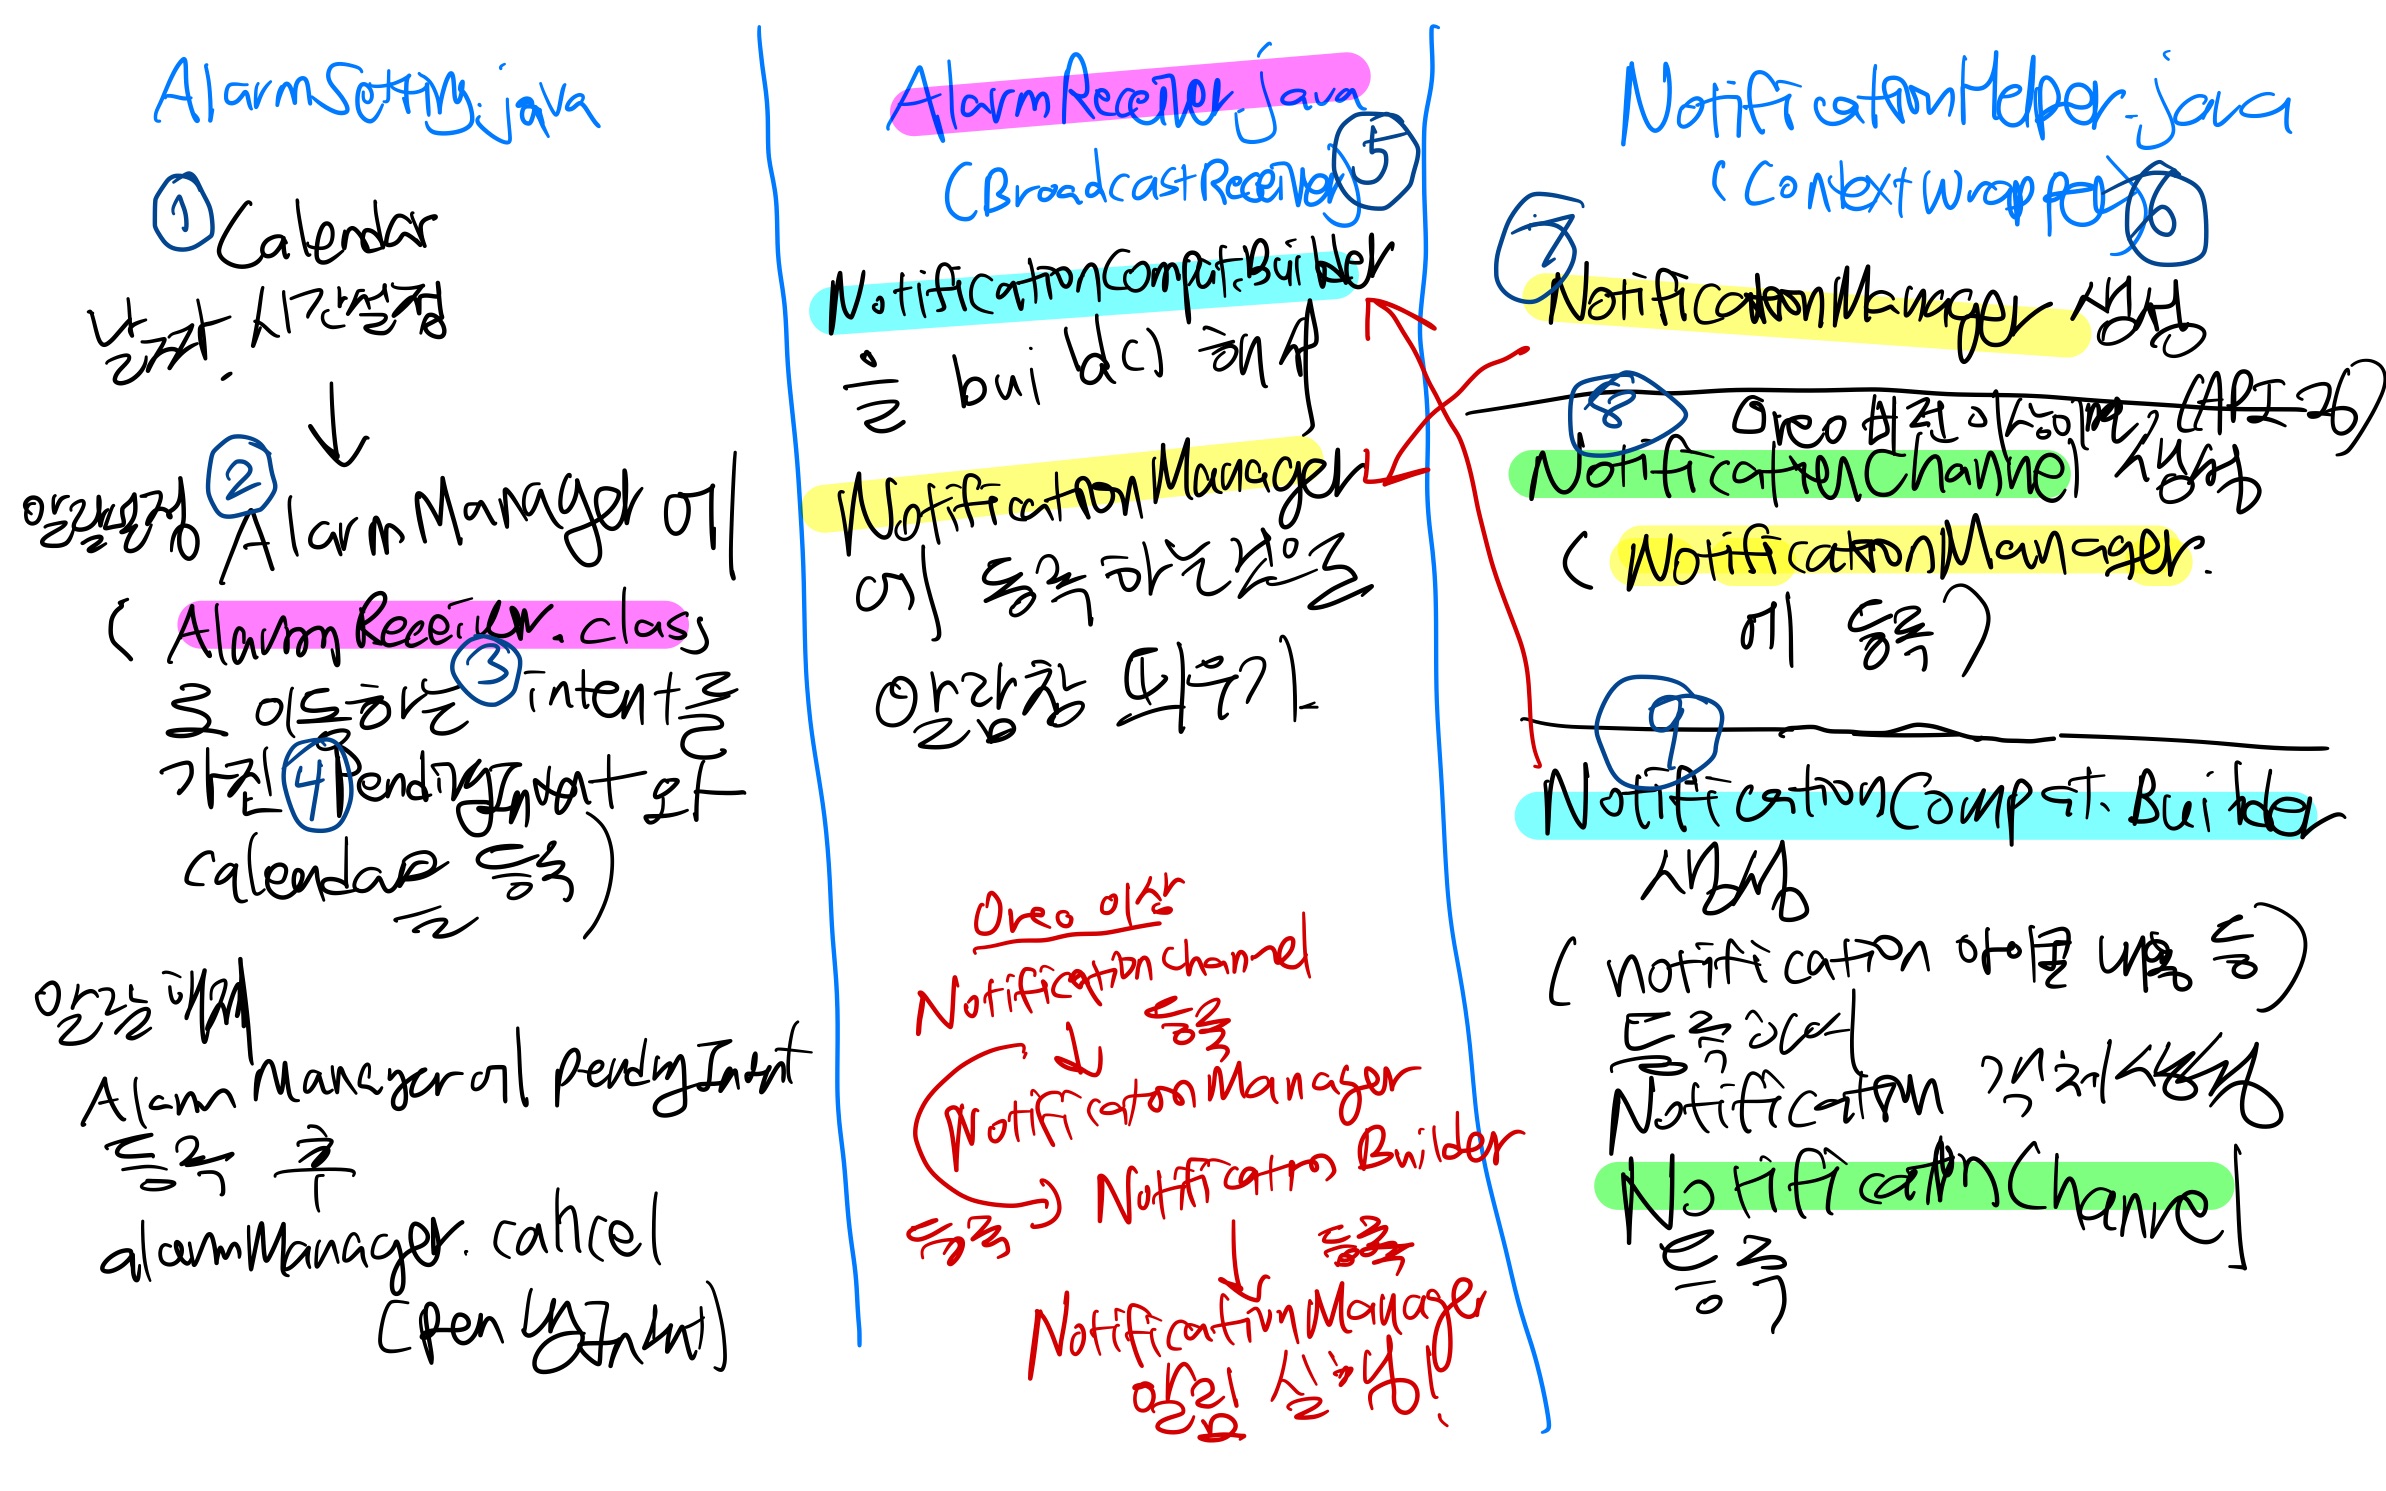 AlarmSetting.java
① Calendar
날짜, 시간 설정
알람설정
② AlarmManager에
( AlarmReceiver.class
로 이동하는 ③ intent를
가진 ④ PendingIntent와
calendar를 등록)
알람 해제
AlarmManager에 pendingIntent
등록 후
alarmManager.cancel
(pendingIntent)
AlarmReceiver.java
(BroadcastReceiver) ⑤
NotificationCompat.Builder
를 build() 해서
NotificationManager
에 등록하는걸로
알람창 띄우기
Oreo 이상
NotificationChannel
등록
NotificationManager
Notification Builder
등록
등록
NotificationManager
알림 실행!
NotificationHelper.java
(ContextWrapper) ⑥
⑦
NotificationManager 생성
⑧ Oreo 버전 이상이면 (API 26)
NotificationChannel 생성
( NotificationManager
에 등록)
⑨
NotificationCompat.Builder
생성
(notification 아이콘 내용 등)
등록해서
Notification 객체 생성
NotificationChannel
등록